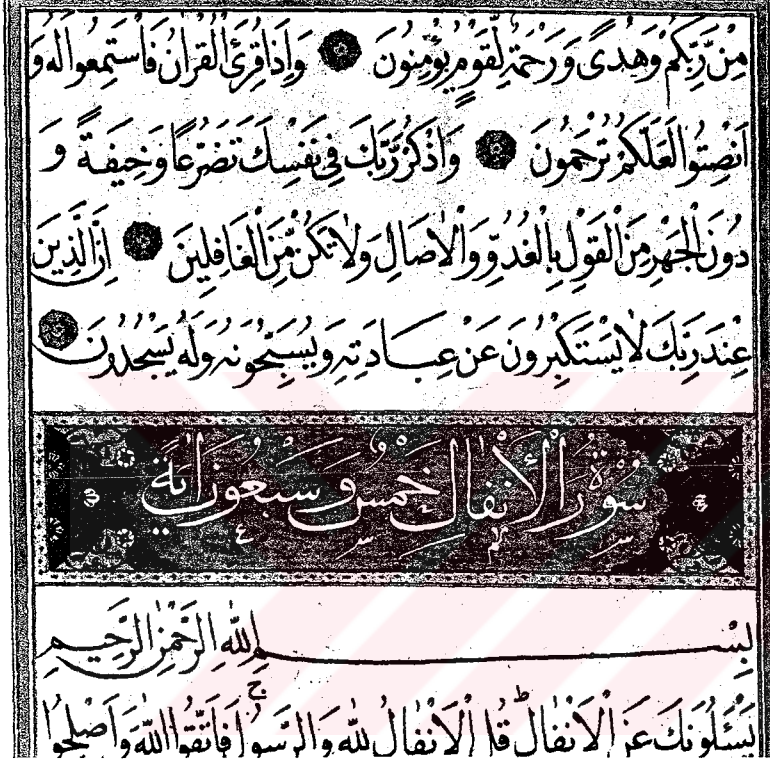 مِنْ رَبِّكُمْ وَهُدًى وَرَحْمَةٌ لِقَوْمٍ يُؤْمِنُونَ وَإِذَا قُرِئَ الْقُرْاٰنُ فَاسْتَمِعُوا لَهُ وَ
اَنْصِتُوا لَعَلَّكُمْ تُرْحَمُونَ وَاذْكُرْ رَبَّكَ فِى نَفْسِكَ تَضَرُّعًا وَخِيفَةً وَ
دُونَ الْجَهْرِ مِنَ الْقَوْلِ بِالْغُدُوِّ وَالْاٰصَالِ وَلَا تَكُنْ مِنَ الْغَافِلِينَ اِنَّ الَّذِينَ
عِنْدَ رَبِّكَ لَا يَسْتَكْبِرُونَ عَنْ عِبَادَتِهِ وَيُسَبِّحُونَهُ وَلَهُ يَسْجُدُونَ
سُورَةُ الْاَنْفَالِ خَمْسٌ وَسَبْعُونَ اٰيَةً
بِسْمِ اللّٰهِ الرَّحْمٰنِ الرَّحِيمِ
يَسْـَٔلُونَكَ عَنِ الْاَنْفَالِ ط قُلِ الْاَنْفَالُ لِلّٰهِ وَالرَّسُولِ ج فَاتَّقُوا اللّٰهَ وَاَصْلِحُوا